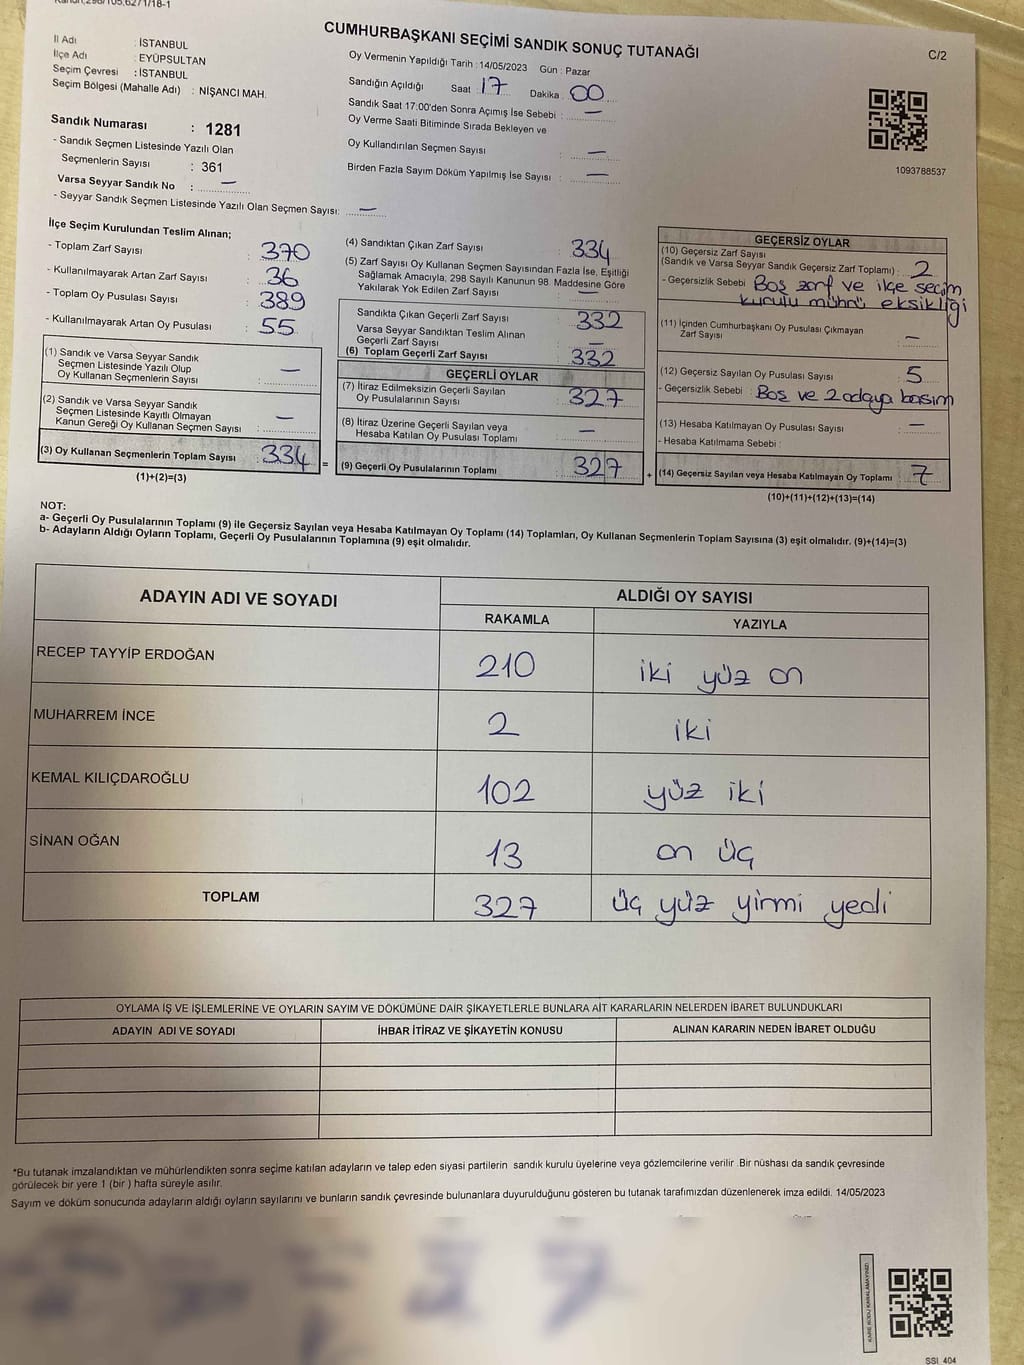 Kanun,298/105,6271/18-1
CUMHURBAŞKANI SEÇİMİ SANDIK SONUÇ TUTANAĞI
C/2
İl Adı : İSTANBUL
İlçe Adı : EYÜPSULTAN
Seçim Çevresi : İSTANBUL
Seçim Bölgesi (Mahalle Adı) : NİŞANCI MAH.
Oy Vermenin Yapıldığı Tarih : 14/05/2023 Gün : Pazar
Sandığın Açıldığı Saat : 17 Dakika : 00
Sandık Saat 17:00'den Sonra Açımış İse Sebebi : —
Oy Verme Saati Bitiminde Sırada Bekleyen ve
Oy Kullandırılan Seçmen Sayısı : —
Birden Fazla Sayım Döküm Yapılmış İse Sayısı : —
1093788537
Sandık Numarası : 1281
- Sandık Seçmen Listesinde Yazılı Olan
Seçmenlerin Sayısı : 361
Varsa Seyyar Sandık No : —
- Seyyar Sandık Seçmen Listesinde Yazılı Olan Seçmen Sayısı: —
İlçe Seçim Kurulundan Teslim Alınan;
- Toplam Zarf Sayısı : 370
- Kullanılmayarak Artan Zarf Sayısı : 36
- Toplam Oy Pusulası Sayısı : 389
- Kullanılmayarak Artan Oy Pusulası : 55
(1) Sandık ve Varsa Seyyar Sandık
Seçmen Listesinde Yazılı Olup
Oy Kullanan Seçmenlerin Sayısı : —
(2) Sandık ve Varsa Seyyar Sandık
Seçmen Listesinde Kayıtlı Olmayan
Kanun Gereği Oy Kullanan Seçmen Sayısı : —
(3) Oy Kullanan Seçmenlerin Toplam Sayısı : 334
(1)+(2)=(3)
=
(4) Sandıktan Çıkan Zarf Sayısı : 334
(5) Zarf Sayısı Oy Kullanan Seçmen Sayısından Fazla İse, Eşitliği
Sağlamak Amacıyla, 298 Sayılı Kanunun 98. Maddesine Göre
Yakılarak Yok Edilen Zarf Sayısı : —
Sandıkta Çıkan Geçerli Zarf Sayısı : 332
Varsa Seyyar Sandıktan Teslim Alınan
Geçerli Zarf Sayısı : —
(6) Toplam Geçerli Zarf Sayısı : 332
GEÇERLİ OYLAR
(7) İtiraz Edilmeksizin Geçerli Sayılan
Oy Pusulalarının Sayısı : 327
(8) İtiraz Üzerine Geçerli Sayılan veya
Hesaba Katılan Oy Pusulası Toplamı : —
(9) Geçerli Oy Pusulalarının Toplamı : 327
+
GEÇERSİZ OYLAR
(10) Geçersiz Zarf Sayısı
(Sandık ve Varsa Seyyar Sandık Geçersiz Zarf Toplamı) : 2
- Geçersizlik Sebebi : Boş zarf ve ilçe seçim
kurulu mührü eksikliği
(11) İçinden Cumhurbaşkanı Oy Pusulası Çıkmayan
Zarf Sayısı : —
(12) Geçersiz Sayılan Oy Pusulası Sayısı : 5
- Geçersizlik Sebebi : Boş ve 2 adaya basım
(13) Hesaba Katılmayan Oy Pusulası Sayısı : —
- Hesaba Katılmama Sebebi :
(14) Geçersiz Sayılan veya Hesaba Katılmayan Oy Toplamı : 7
(10)+(11)+(12)+(13)=(14)
NOT:
a- Geçerli Oy Pusulalarının Toplamı (9) ile Geçersiz Sayılan veya Hesaba Katılmayan Oy Toplamı (14) Toplamları, Oy Kullanan Seçmenlerin Toplam Sayısına (3) eşit olmalıdır. (9)+(14)=(3)
b- Adayların Aldığı Oyların Toplamı, Geçerli Oy Pusulalarının Toplamına (9) eşit olmalıdır.
ADAYIN ADI VE SOYADI ALDIĞI OY SAYISI
RAKAMLA YAZIYLA
RECEP TAYYİP ERDOĞAN 210 iki yüz on
MUHARREM İNCE 2 iki
KEMAL KILIÇDAROĞLU 102 yüz iki
SİNAN OĞAN 13 on üç
TOPLAM 327 üç yüz yirmi yedi
OYLAMA İŞ VE İŞLEMLERİNE VE OYLARIN SAYIM VE DÖKÜMÜNE DAİR ŞİKAYETLERLE BUNLARA AİT KARARLARIN NELERDEN İBARET BULUNDUKLARI
ADAYIN ADI VE SOYADI İHBAR İTİRAZ VE ŞİKAYETİN KONUSU ALINAN KARARIN NEDEN İBARET OLDUĞU
*Bu tutanak imzalandıktan ve mühürlendikten sonra seçime katılan adayların ve talep eden siyasi partilerin sandık kurulu üyelerine veya gözlemcilerine verilir .Bir nüshası da sandık çevresinde
görülecek bir yere 1 (bir ) hafta süreyle asılır.
Sayım ve döküm sonucunda adayların aldığı oyların sayılarını ve bunların sandık çevresinde bulunanlara duyurulduğunu gösteren bu tutanak tarafımızdan düzenlenerek imza edildi. 14/05/2023
KARE KODU KARALAMAYINIZ!
SSI_404